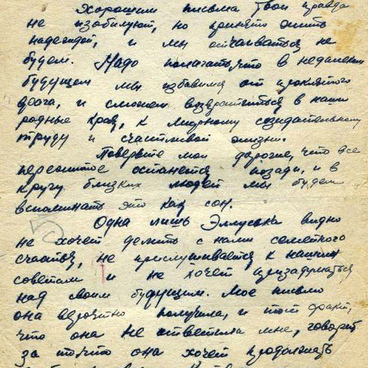 Хорошим письма твои правда
не изобилуют, но принято жить
надеждой, и мы отчаиваться не
будем. Надо полагать, что в недалеком
будущем мы избавимся от проклятого
врага, и сможем возвратиться в наши
родные края, к мирному созидательному
труду и счастливой жизни.
Поверьте мои дорогие, что все
пережитое останется позади, и в
кругу близких людей мы будем
вспоминать это как сон.
Одна лишь Эллуська видно
не хочет делить с нами семейного
счастья, не прислушивается к нашим
советам и не хочет призадуматься
над своим будущим. Мое письмо
она вероятно получила, и тот факт,
что она не ответила мне, говорит
за то что она хочет продолжать